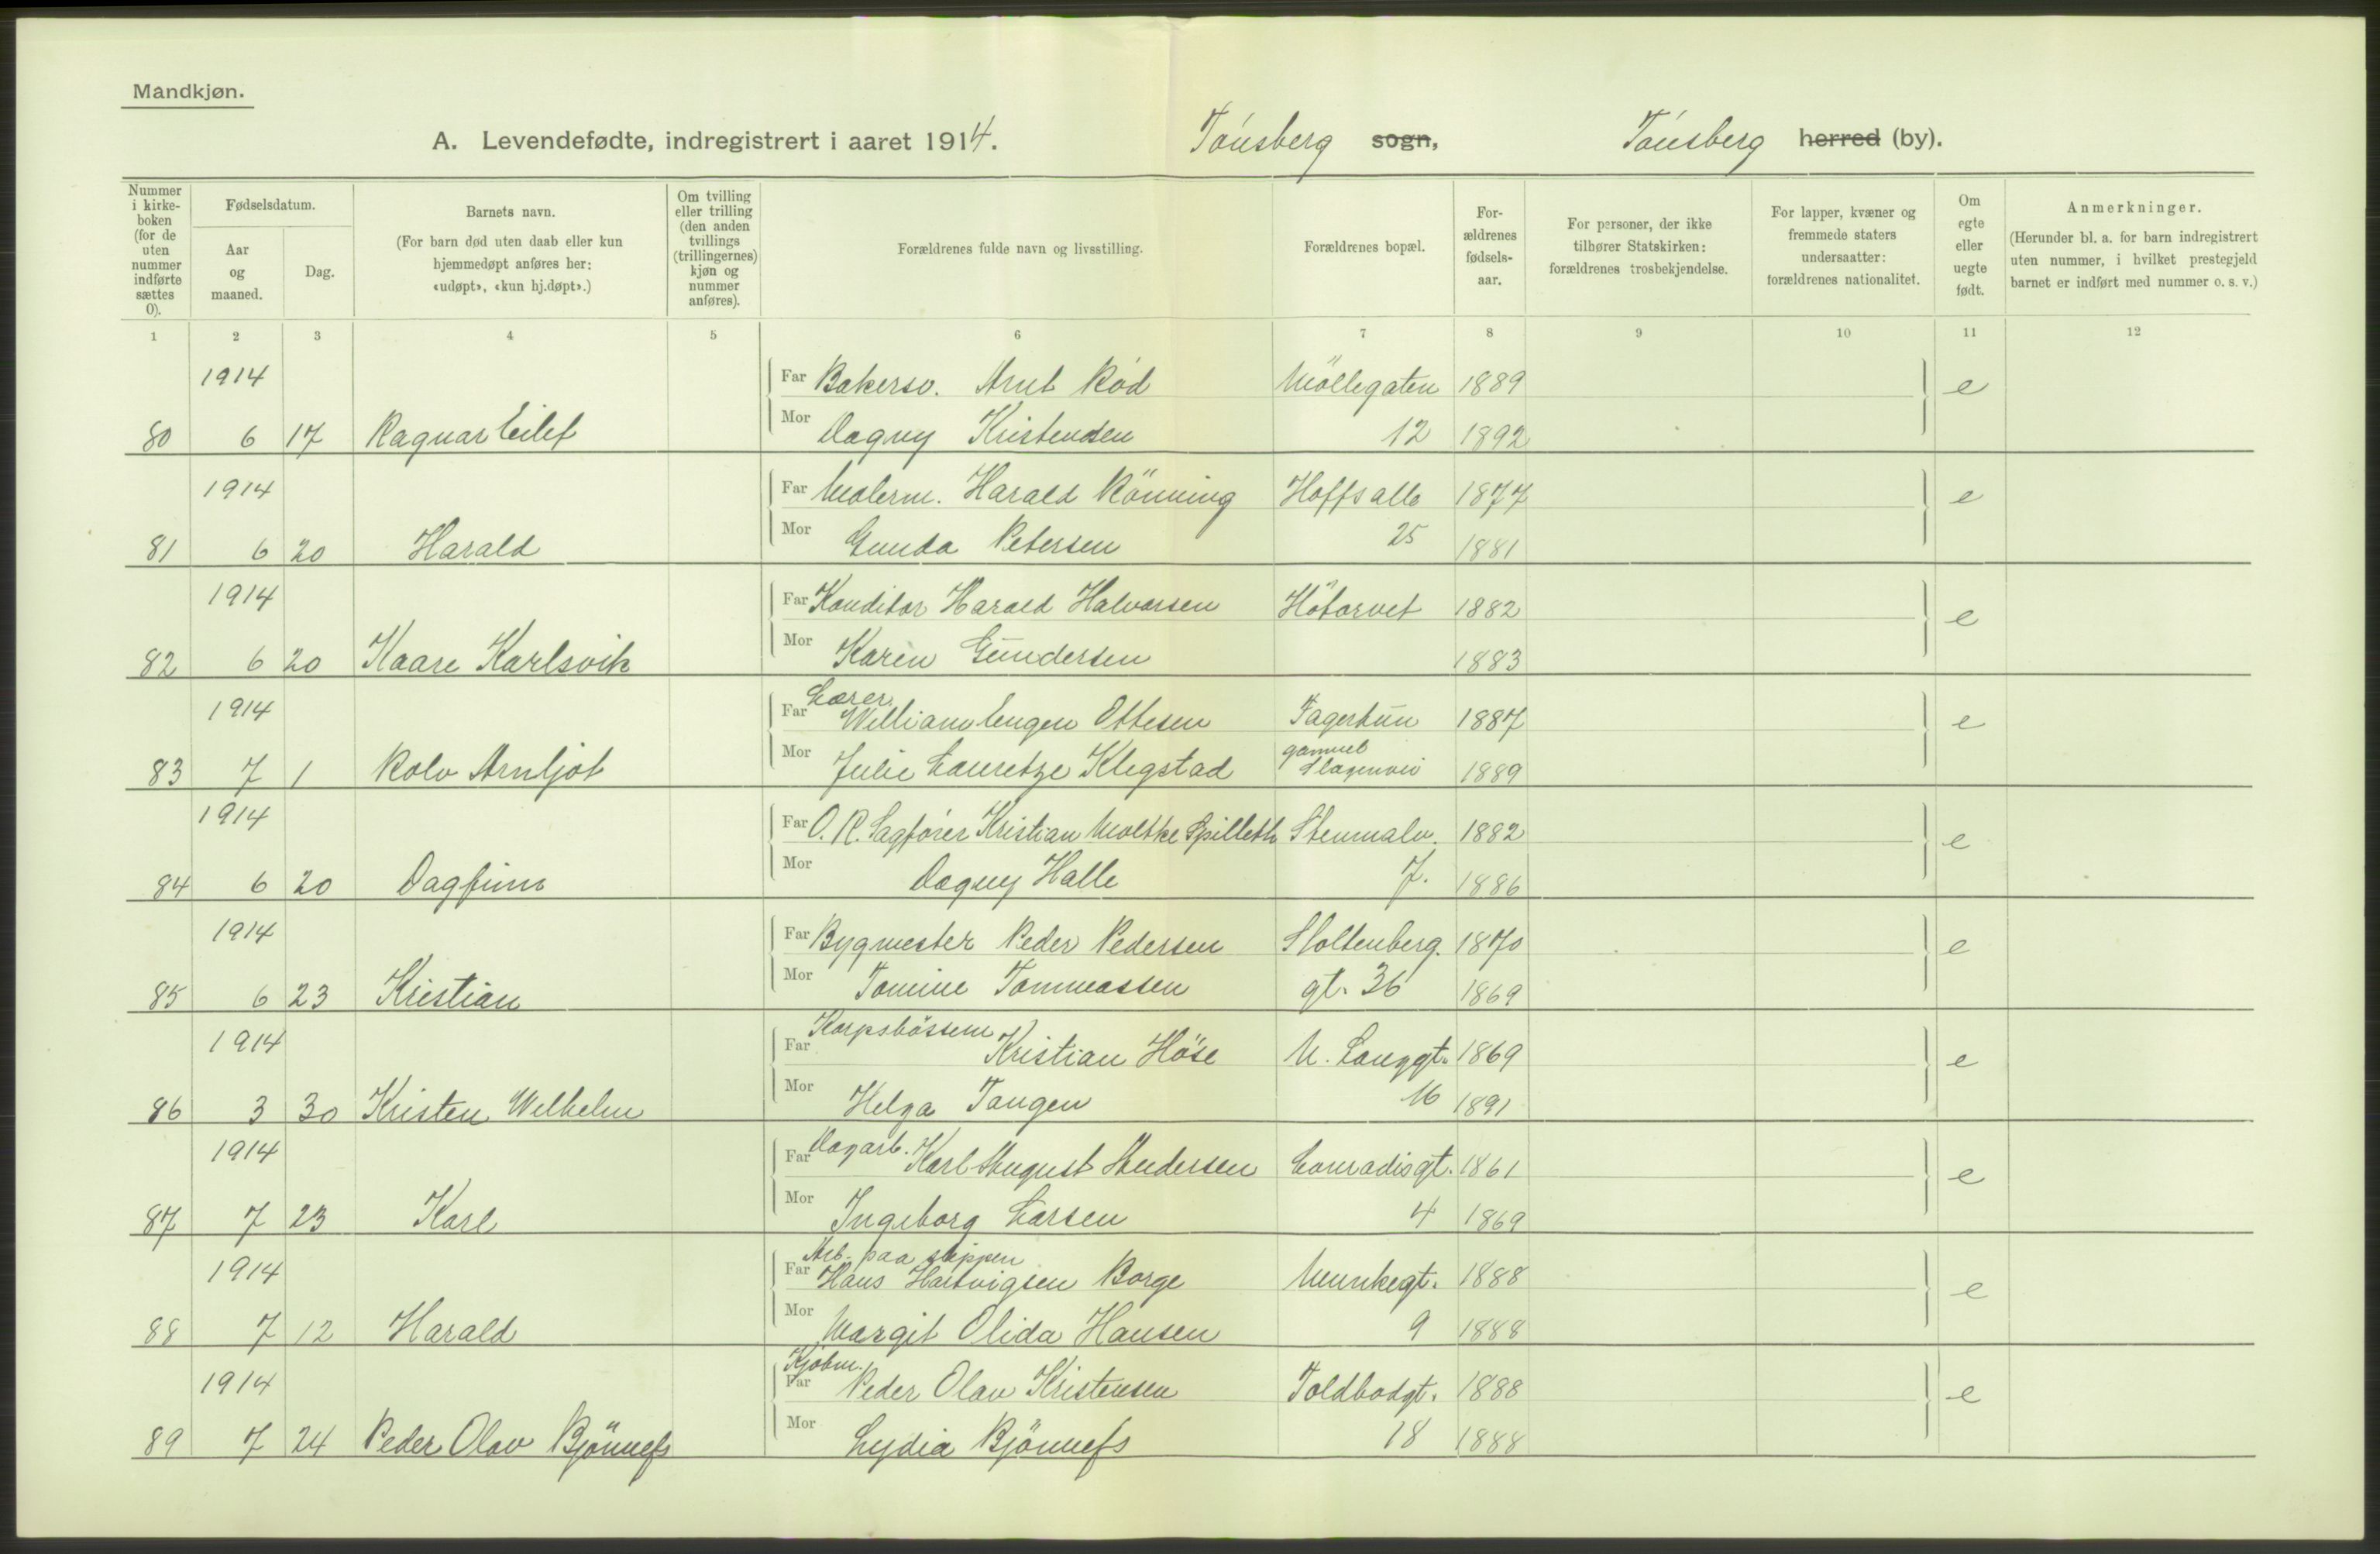 Mandkjøn.
A. Levendefødte, indregistrert i aaret 1914. Tønsberg sogn, Tønsberg herred (by).
Nummer i kirkeboken (for de uten nummer indførte sættes 0).
Fødselsdatum.
Aar og maaned.
Dag.
Barnets navn.
(For barn død uten daab eller kun hjemmedøpt anføres her: «udøpt», «kun hj.døpt».)
Om tvilling eller trilling (den anden tvillings (trillingernes) kjøn og nummer anføres).
Forældrenes fulde navn og livsstilling.
Forældrenes bopæl.
Forældrenes fødselsaar.
For personer, der ikke tilhører Statskirken: forældrenes trosbekjendelse.
For lapper, kvæner og fremmede staters undersaatter: forældrenes nationalitet.
Om egte eller uegte født.
Anmerkninger.
(Herunder bl. a. for barn indregistrert uten nummer, i hvilket prestegjeld barnet er indført med nummer o. s. v.)
1 2 3 4 5 6 7 8 9 10 11 12
1914 Far Bakersv. Arnt Röd Möllegaten 1889 e
80 6 17 Ragnar Eilef Mor Dagny Kristensen 12 1892
1914 Far Malerm. Harald Rönning Hoffsalle 1877 e
81 6 20 Harald Mor Gunda Petersen 25 1881
1914 Far Konditor Harald Halvorsen Hötorvet 1882 e
82 6 20 Kaare Karlsvik Mor Karen Gundersen 1883
Lærer
1914 Far William Eugen Ottesen Fagertun 1887 e
83 7 1 Rolv Arnljot Mor Julie Lauretze Klegstad gammel Slagenvei 1889
1914 Far O. R. Sagförer Kristian Moltke Spilleth Stenmalv. 1882 e
84 6 20 Dagfinn Mor Dagny Halle 7. 1886
1914 Far Bygmester Peder Pedersen Stoltenberg. 1870 e
85 6 23 Kristian Mor Tomine Tommassen gt. 36 1869
1914 Far Kristian Höse N. Langgt. 1869 e
86 3 30 Kristen Wilhelm Mor Helga Tangen 16 1891
1914 Far Dagarb. Karl August Andersen Conradisgt. 1861 e
87 7 23 Karl Mor Ingeborg Larsen 4 1869
Arb. paa slippen
1914 Far Hans Hartvigsen Borge Munkegt. 1888 e
88 7 12 Harald Mor Margit Olida Hansen 9 1888
Kjöbm.
1914 Far Peder Olav Kristensen Toldbodgt. 1888 e
89 7 24 Peder Olav Bjönnefs Mor Lydia Bjönnefs 18 1888